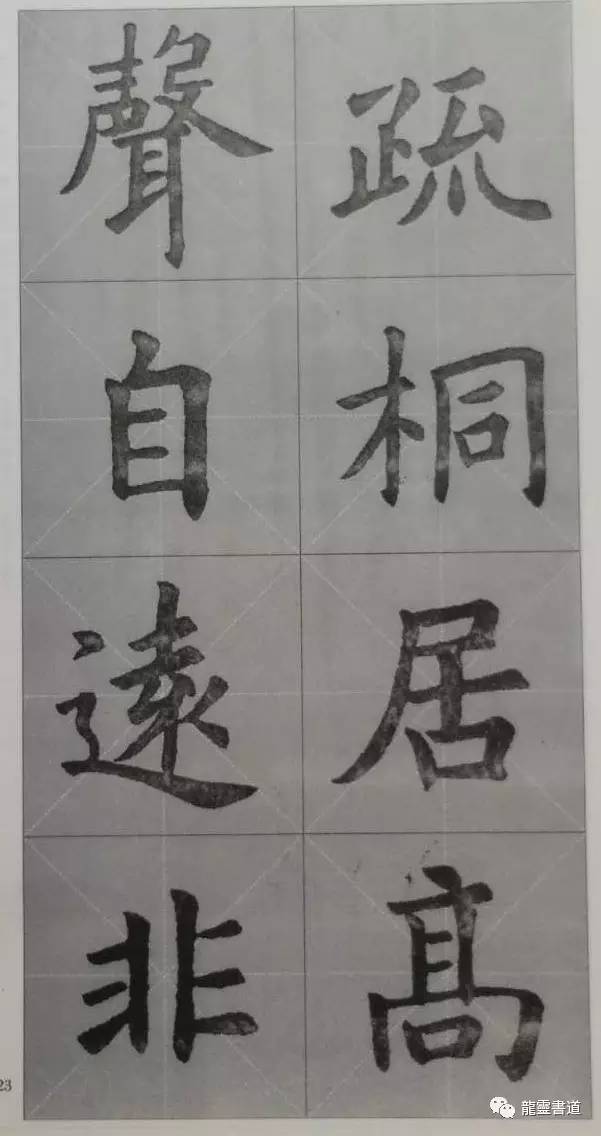 疏桐居髙
聲自遠非
23
龍靈書道